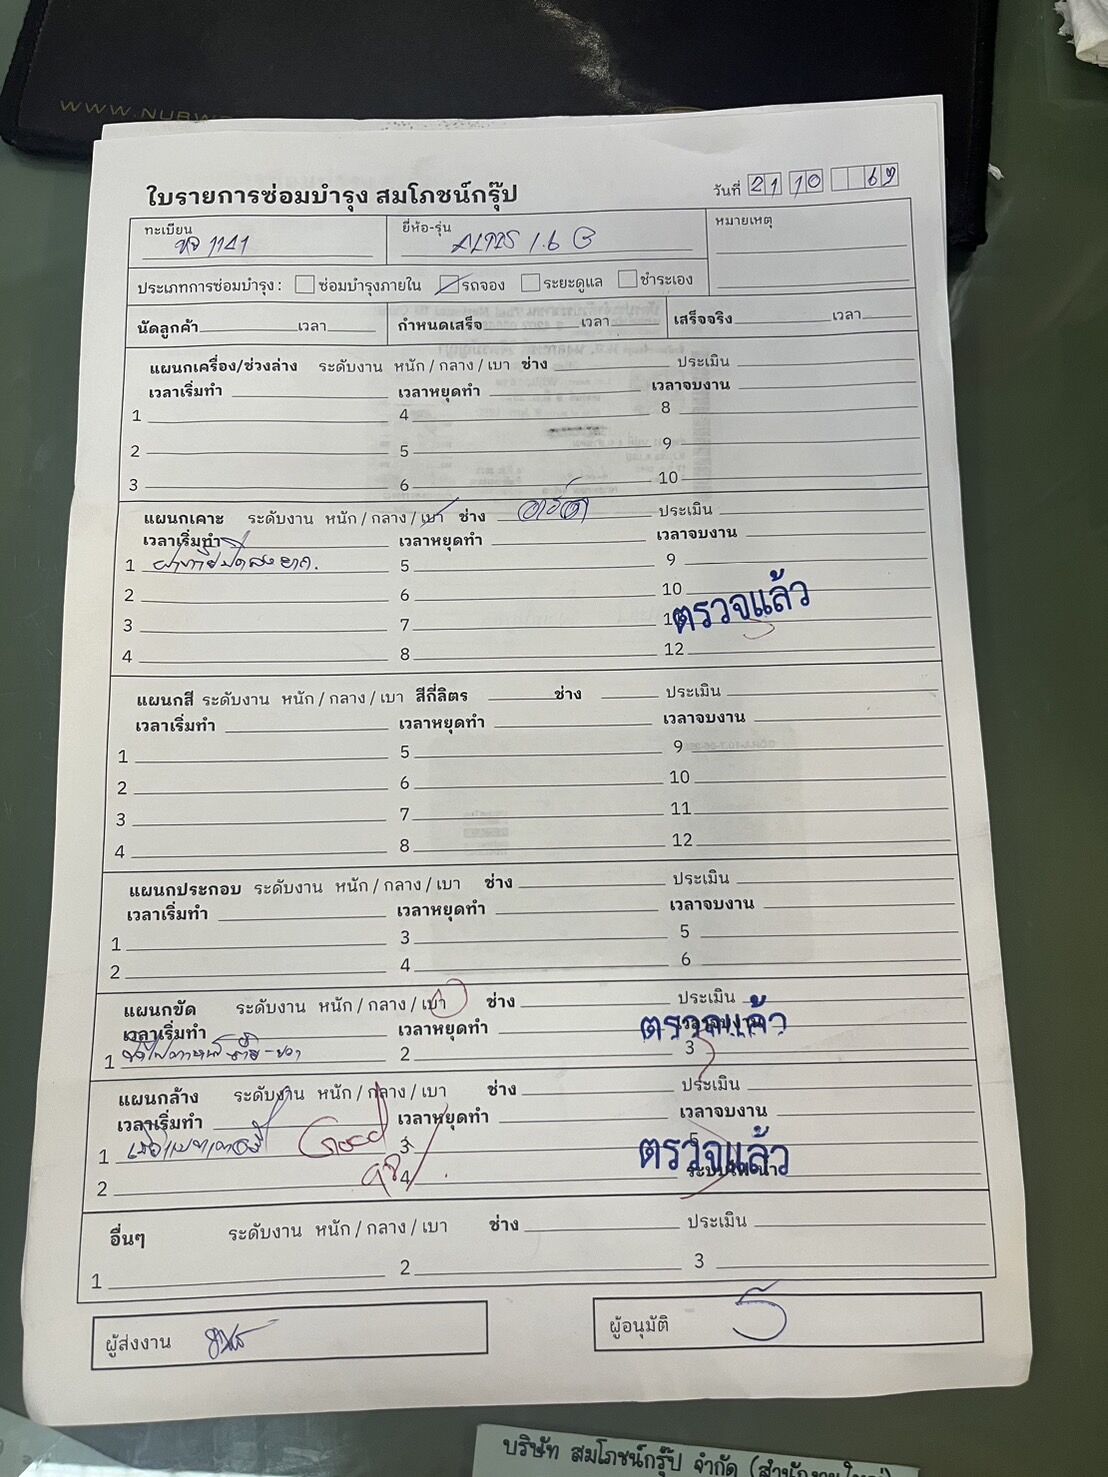 WWW.NUBW
ใบรายการซ่อมบำรุง สมโภชน์กรุ๊ป
วันที่ 21 10 69
ทะเบียน 1141
ยี่ห้อ-รุ่น ALTIS 1.6 G
หมายเหตุ
ประเภทการซ่อมบำรุง : ซ่อมบำรุงภายใน รถจอง ระยะดูแล ชำระเอง
นัดลูกค้า เวลา กำหนดเสร็จ เวลา เสร็จจริง เวลา
แผนกเครื่อง/ช่วงล่าง ระดับงาน หนัก / กลาง / เบา ช่าง ประเมิน
เวลาเริ่มทำ เวลาหยุดทำ เวลาจบงาน
1 4 8
2 5 9
3 6 10
แผนกเคาะ ระดับงาน หนัก / กลาง / เบา ช่าง ประเมิน
เวลาเริ่มทำ เวลาหยุดทำ เวลาจบงาน
1 5 9
2 6 10
3 7 1 ตรวจแล้ว
4 8 12
แผนกสี ระดับงาน หนัก / กลาง / เบา สีกี่ลิตร ช่าง ประเมิน
เวลาเริ่มทำ เวลาหยุดทำ เวลาจบงาน
1 5 9
2 6 10
3 7 11
4 8 12
แผนกประกอบ ระดับงาน หนัก / กลาง / เบา ช่าง ประเมิน
เวลาเริ่มทำ เวลาหยุดทำ เวลาจบงาน
1 3 5
2 4 6
แผนกขัด ระดับงาน หนัก / กลาง / เบา ช่าง ประเมิน
เวลาเริ่มทำ เวลาหยุดทำ เวลาจบงาน ตรวจแล้ว
1 2 3
แผนกล้าง ระดับงาน หนัก / กลาง / เบา ช่าง ประเมิน
เวลาเริ่มทำ เวลาหยุดทำ เวลาจบงาน
1 Good 3 5 ตรวจแล้ว
2 4
อื่นๆ ระดับงาน หนัก / กลาง / เบา ช่าง ประเมิน
1 2 3
ผู้ส่งงาน
ผู้อนุมัติ
บริษัท สมโภชน์กรุ๊ป จำกัด (สำนักงานใหญ่)